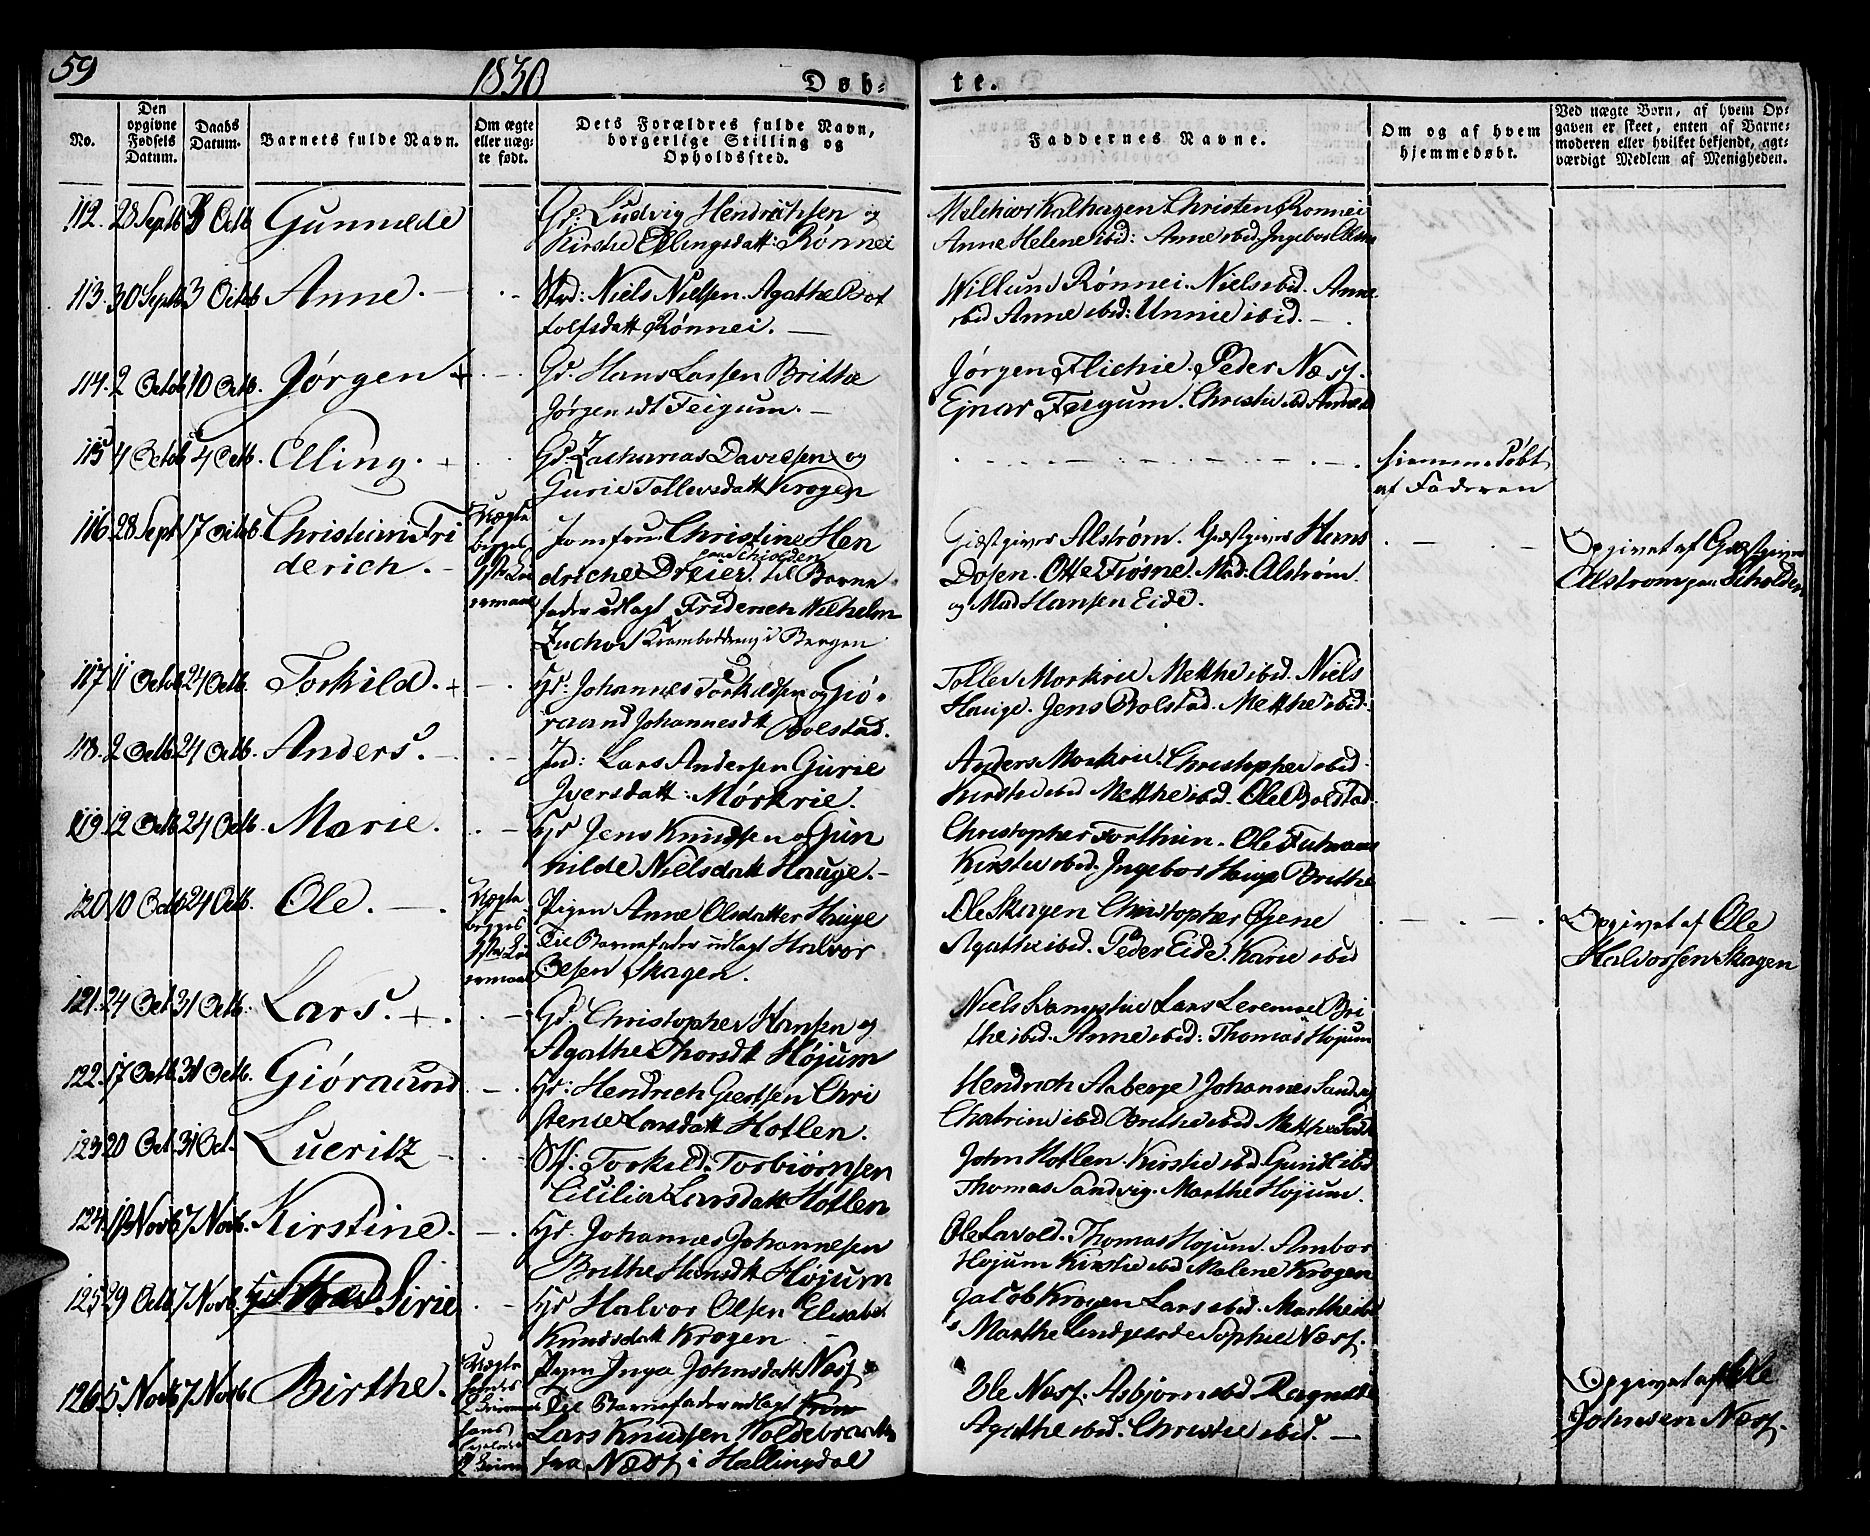 59
1830
Døb-
te.
No.
Den opgivne Fødsels Datum.
Daabs Datum.
Barnets fulde Navn.
Om ægte eller uægte født.
Dets Forældres fulde Navn, borgerlige Stilling og Opholdssted.
Faddernes Navne.
Om og af hvem hjemmedøbt.
Ved uægte Børn, af hvem Opgaven er skeet, enten af Barnemoderen eller hvilket bekjendt, agtværdigt Medlem af Menigheden.
112. 28 Septb 3 Octb Gunnilde
Gd: Ludvig Hendrichsen og
Kirstie Ellingsdatt: Rønnei
Melchior Kalhagen Christen Rønnei
Anne Helene ibid: Anne ibid. Ingebor
113. 30 Septb 3 Octob Anne. —
Niels Nielsen. Agathe Bot
tolfsdatt Rønnei. —
Willum Rønnei. Niels ibid. Anne
ibid Anne ibid: Unnie ibid. —
114. 2 Octob 10 Octb. Jørgen +
Gd. Hans Larsen Brithe
Jørgensdt Feigum. —
Jørgen Flichie. Peder Næss.
Ejnar Feigum. Christie ibid Anne ibid
115 4 Octob 4 Octb. Elling. +
Gd. Zacharias Davidsen og
Gurie Tollevsdatt Krogen
hiemmedøbt
af Faderen
116 28 Sept 17 Octob. Christian Fri
derich. —
Uægte
begges
1ste Lei
ermaal
Jomfru Christine Hen
driche Dreier. paa Schiolden til Barne
fader udlagt Friderich Wilhelm
Zuchow Kramboddreng i Bergen
Giæstgiver Alstrøm. Giæstgiver Hans
Dosen. Otte Fiøsne. Mad: Alstrøm
og Mad Hansen Eide.
Opgivet af Giæstgiver
Alstrøm paa Scholden
117 11 Octob 24 Octb. Torkild. +
Gd: Johannes Torkildsen og Giø
raand Johannesdt Bolstad.
Tollev Morkrie Metthe ibid. Niels
Hauge. Jens Bolstad. Metthe ibid.
118. 2 Octb. 24 Octb. Anders. —
Ind: Lars Andersen Gurie
Iversdatt: Mørkrie.
Anders Morkrie. Christopher ibid
Kirstie ibid Metthe ibid. Ole Bolstad.
119. 12 Octb 24 Octb. Marie.
Gd Jens Knudsen og Gun
hilde Nielsdatt Hauge. —
Christopher Forthun. Ole
Kirstie ibid. Ingebor Hauge Brithe
120 10 Octb 24 Octb. Ole. —
Uægte
begges
1ste Lei
ermaal
Pigen Anne Olsdatter Hauge
Til Barnefader udlagt Halvor
Olsen Skagen.
Ole Skagen Christopher Øyene
Agathe ibid. Peder Eide. Karie ibid
Opgivet af Ole
Halvorsen Skagen
121. 24 Oct 31 Octb. Lars. +.
Gd. Christopher Hansen og
Agathe Thorsdt Højum
Niels Lars Bri
the ibid. Anne ibid: Thomas Højum
122. 17 Octb. 31 Octb. Giøraund
Gd: Hendrich Giertsen Chri
stense Larsdatt Hotlen.
Hendrich Aaberge Johannes Sandvig
Chatrine ibid Brithe ibid Metthe
123 20 Oct. 31 Oct. Lueritz —
Torkild. Torbiørnsen
Cicilia Larsdatt Hotlen
John Hotlen. Kirstie ibid. Gunild ibid
Thomas Sandvig. Marthe Højum.
124. 1 Novb 7 Novb. Kirstine.
Gd. Johannes Johannesen
Brithe Hansdt Højum
Ole Lavold. Thomas Højum. Ambor
Højum Kirstie ibid Malene Krogen
125 29 Octb. 7 Novb. Sirie
Gd Halvor Olsen Elisabet
Knudsdatt Krogen
Jacob Krogen Lars ibid. Marthe ibid
Marthe Lindgierde Sophie Næss.
126 5 Novb 7 Novb Birthe.
Uægte
Pigen Inga Johnsdatt Næss
Til Barnefader udlagt
Lars Knudsen
fra Næss i Hallingdal
Ole Næss. Asbjørn ibd Ragnilde
Agathe ibid. Christie ibid. —
Opgivet af Ole
Johnsen Næss.